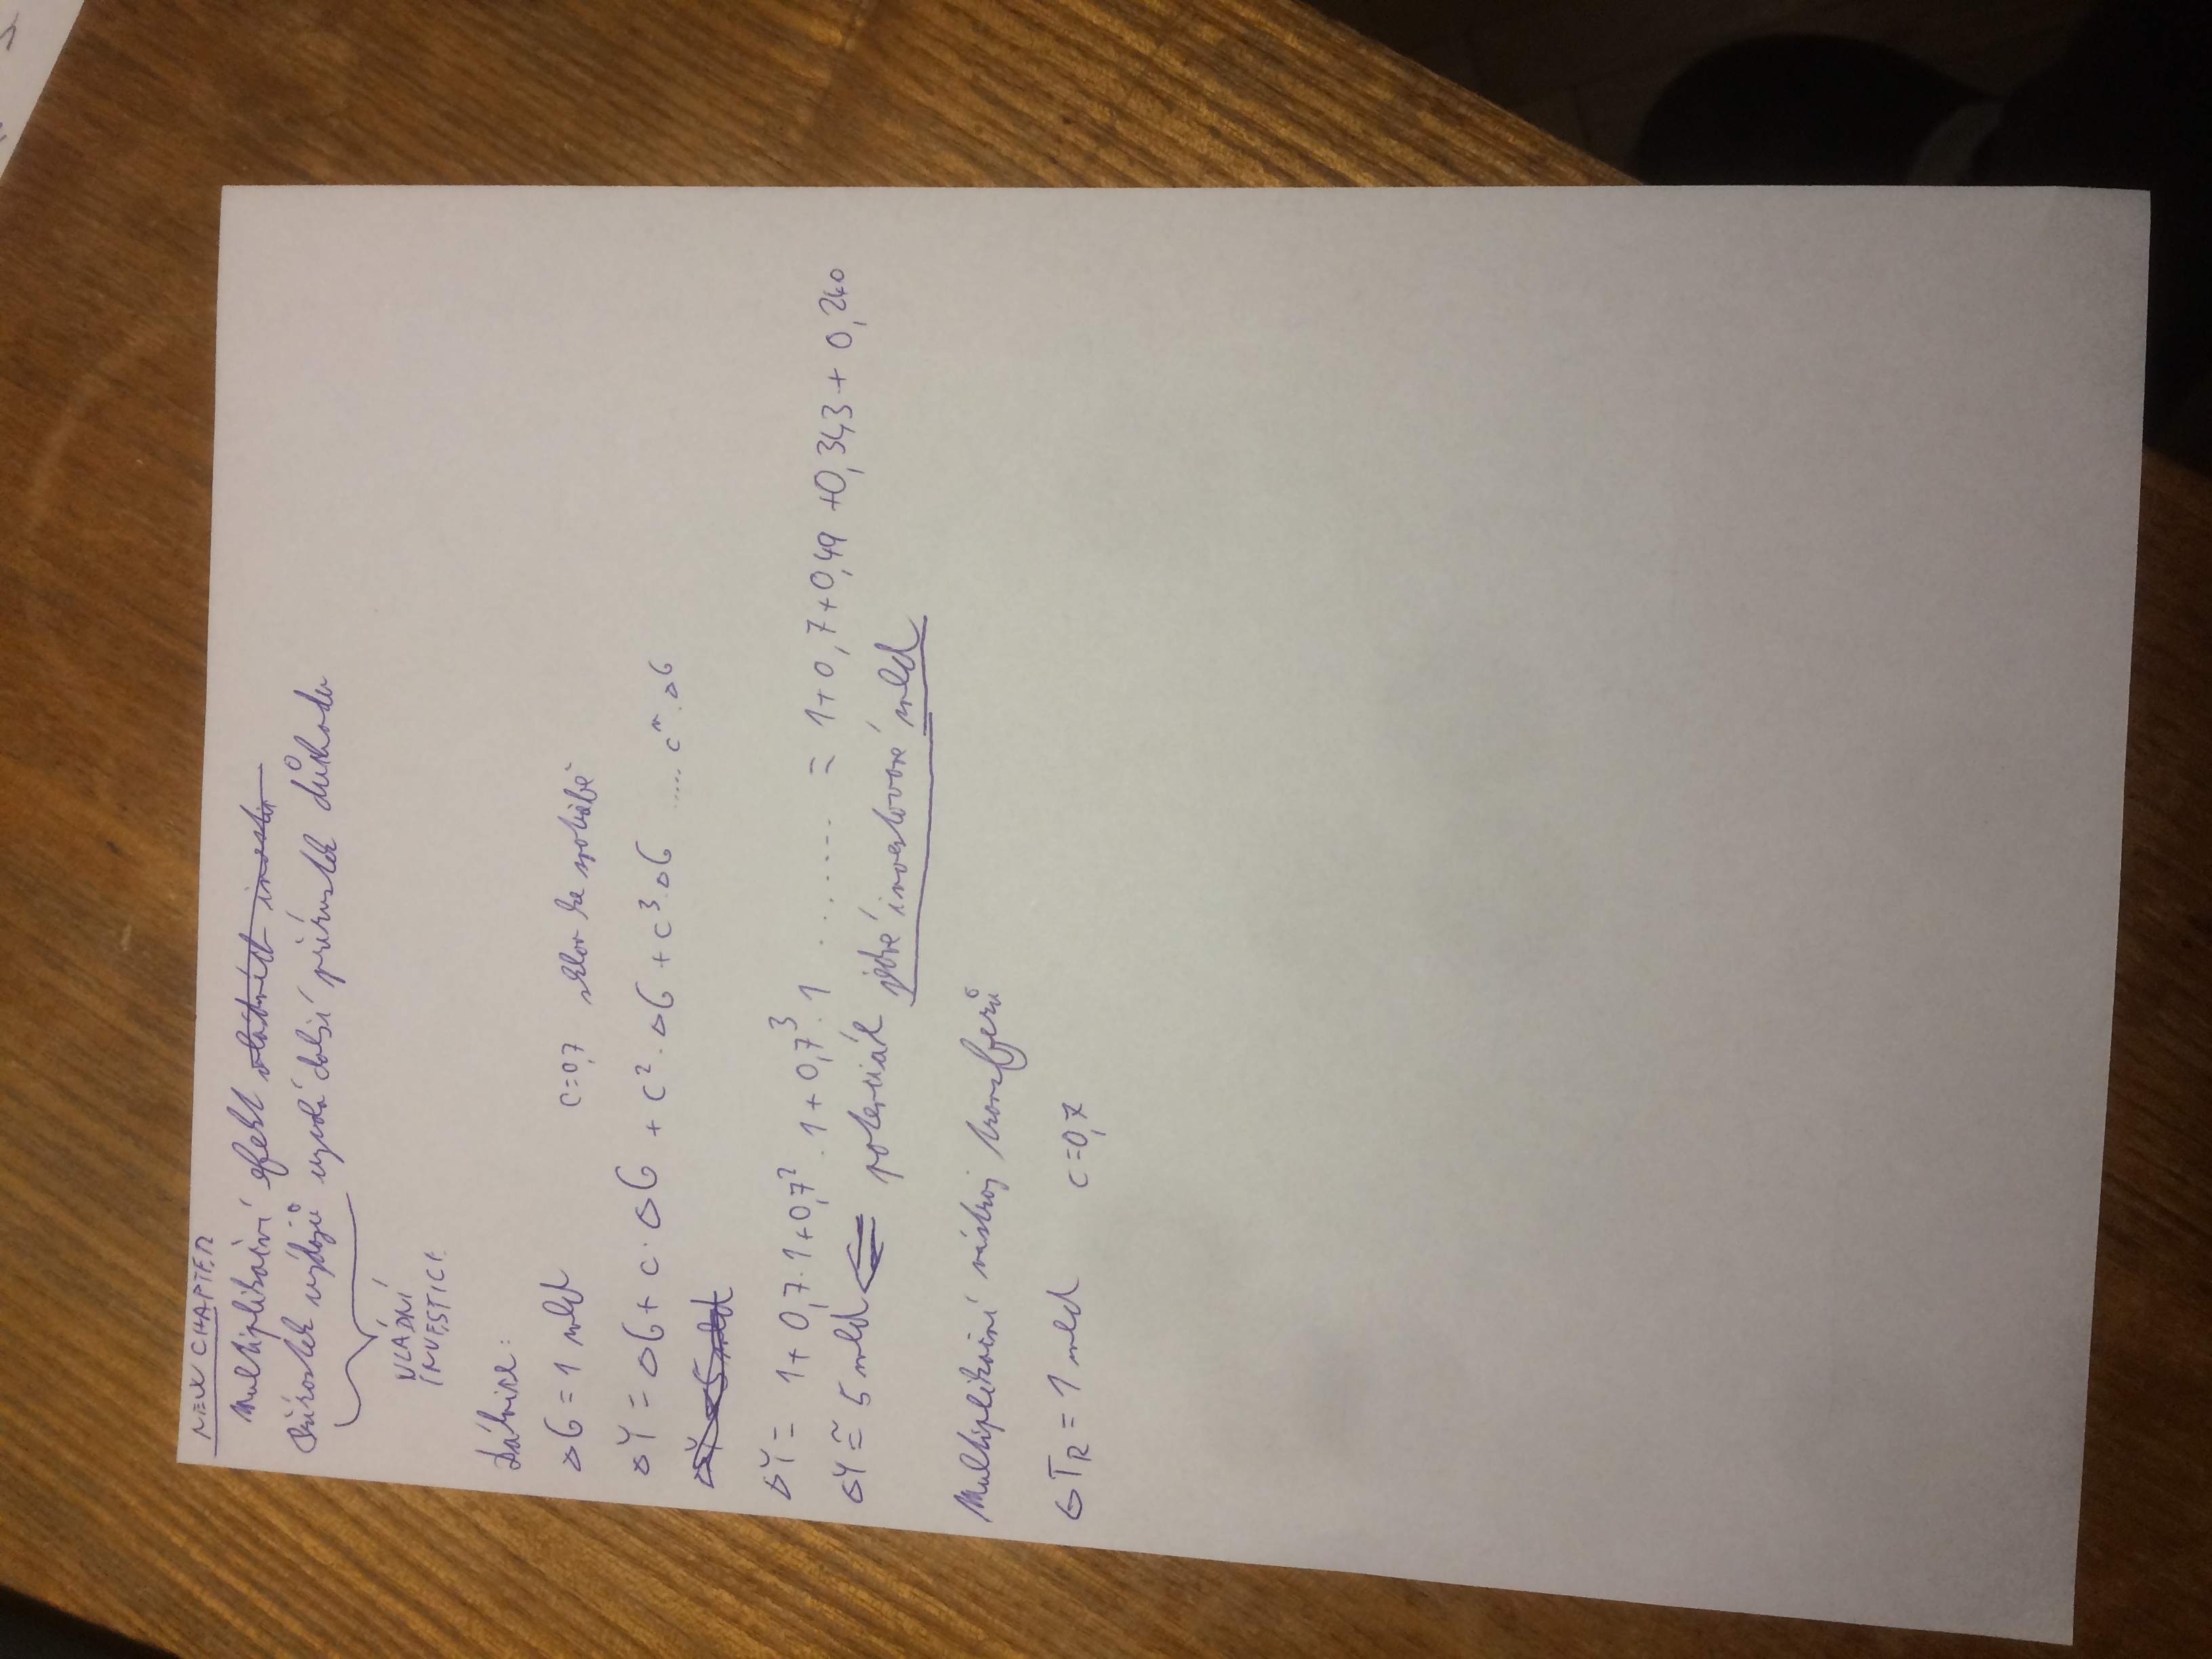 NEW CHAPTER
Multiplikační efekt
Přírostek výdajů vyvolá další přírustek důchodu
VLÁDNÍ
INVESTICE
Dálnice:
ΔG = 1 mld c=0,7 sklon ke spotřebě
ΔY = ΔG + c · ΔG + c² · ΔG + c³ · ΔG ..... cⁿ · ΔG
ΔY = 5 mld
ΔY = 1 + 0,7 · 1 + 0,7² · 1 + 0,7³ · 1 ........ = 1 + 0,7 + 0,49 + 0,343 + 0,240
ΔY ≅ 5 mld ⇐ potenciál jedné investované mld
Multiplikační nástroj transferů
ΔTR = 1 mld c=0,7